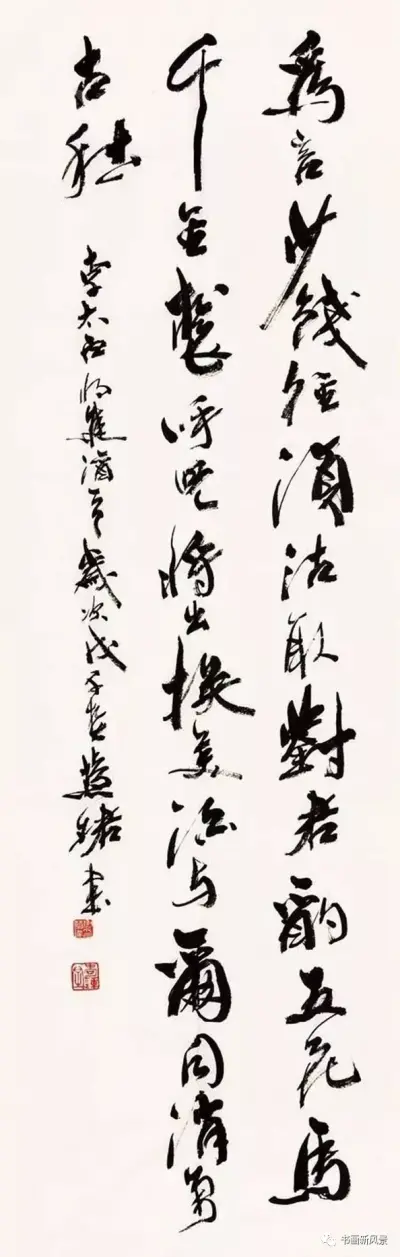 爲言少錢徑須沽取對君酌五花馬
千金裘呼兒將出換美酒与爾同消萬
古愁
李太白將進酒句歲次戊子春書
书画新风景